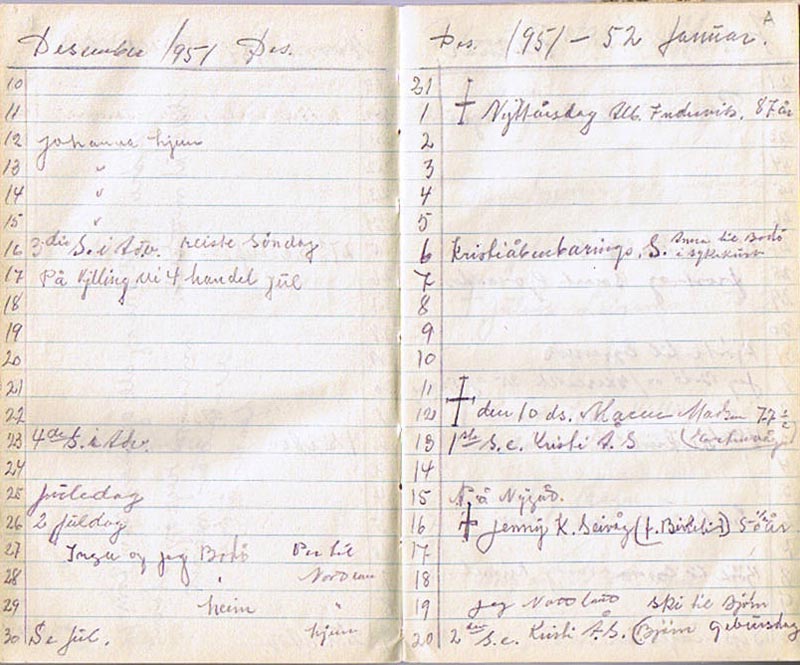 Desember 1951 Des.
10
11
12 Johanna hjem
13 "
14 "
15 "
16 3die S. i Adv. reiste Söndag
17 På Kjilling vi 4 handel jul
18
19
20
21
22
23 4de S. i Adv.
24
25 Juledag
26 2 juldag
27 Inga og jeg Bodö Per til
28 " Nordland
29 heim "
30 S. e Jul. hjem
Des. 1951 – 52 Januar.
21
1 † Nyttårsdag Alb. Frederik. 87 år
2
3
4
5
6 Kristiåbenbarings. S. Anna til Bodö
i sykekurs
7
8
9
10
11 †
12 den 10 ds. Madsen 77 ½
13 1ste S. e. Kristi Å. S
14
15 N. å Nygård.
16 † Jenny K. Seivåg (f. Birkeli) 50 ½ år
17
18
19 jeg Nordland ski til Björn
20 2den S. e. Kristi Å. S. (Björn Gebursdag